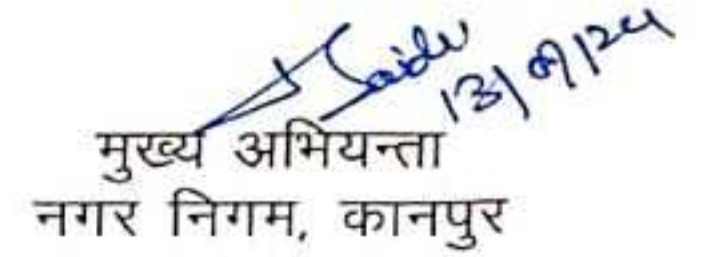 13/09/24
मुख्य अभियन्ता
नगर निगम, कानपुर